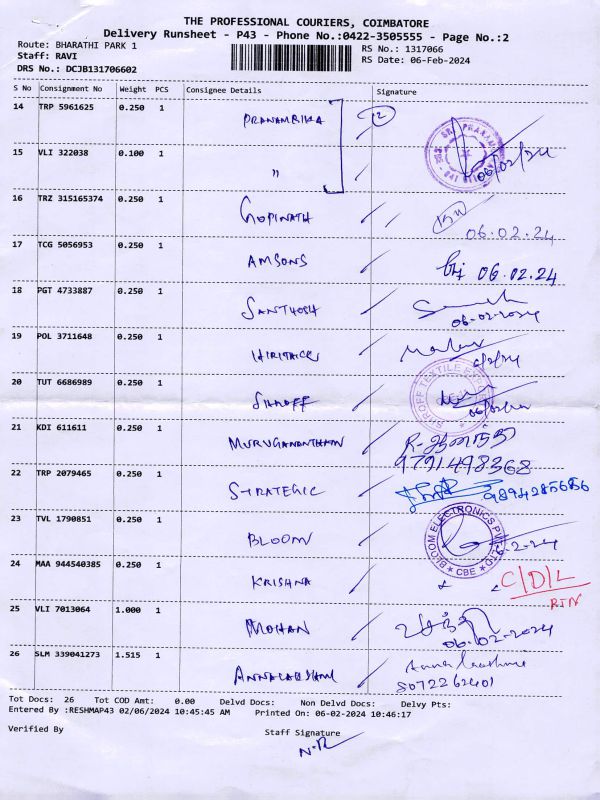 THE PROFESSIONAL COURIERS, COIMBATORE
Delivery Runsheet - P43 - Phone No.:0422-3505555 - Page No.:2
Route: BHARATHI PARK 1
Staff: RAVI
DRS No.: DCJB131706602
RS No.: 1317066
RS Date: 06-Feb-2024
S No Consignment No Weight PCS Consignee Details Signature
14 TRP 5961625 0.250 1 PRANAMBIKA 12
15 VLI 322038 0.100 1 " 06/02/24
16 TRZ 315165374 0.250 1 GOPINATH 06.02.24
17 TCG 5056953 0.250 1 AMSONS 06.02.24
18 PGT 4733887 0.250 1 SANTHOSH 06-02-2024
19 POL 3711648 0.250 1 6/2/24
20 TUT 6686989 0.250 1 SHROFF
21 KDI 611611 0.250 1 MURUGANANTHAM
9791498368
22 TRP 2079465 0.250 1 STRATEGIC 9894285686
23 TVL 1790851 0.250 1 BLOOM BLOOM ELECTRONICS PVT LTD CBE 6-2-24
24 MAA 944540385 0.250 1 KRISHNA C/D/L
RTN
25 VLI 7013064 1.000 1 MOHAN 06-02-2024
26 SLM 339041273 1.515 1 ANNALAKSHMI
8072262401
Tot Docs: 26 Tot COD Amt: 0.00 Delvd Docs: Non Delvd Docs: Delvy Pts:
Entered By :RESHMAP43 02/06/2024 10:45:45 AM Printed On: 06-02-2024 10:46:17
Verified By Staff Signature
N.R